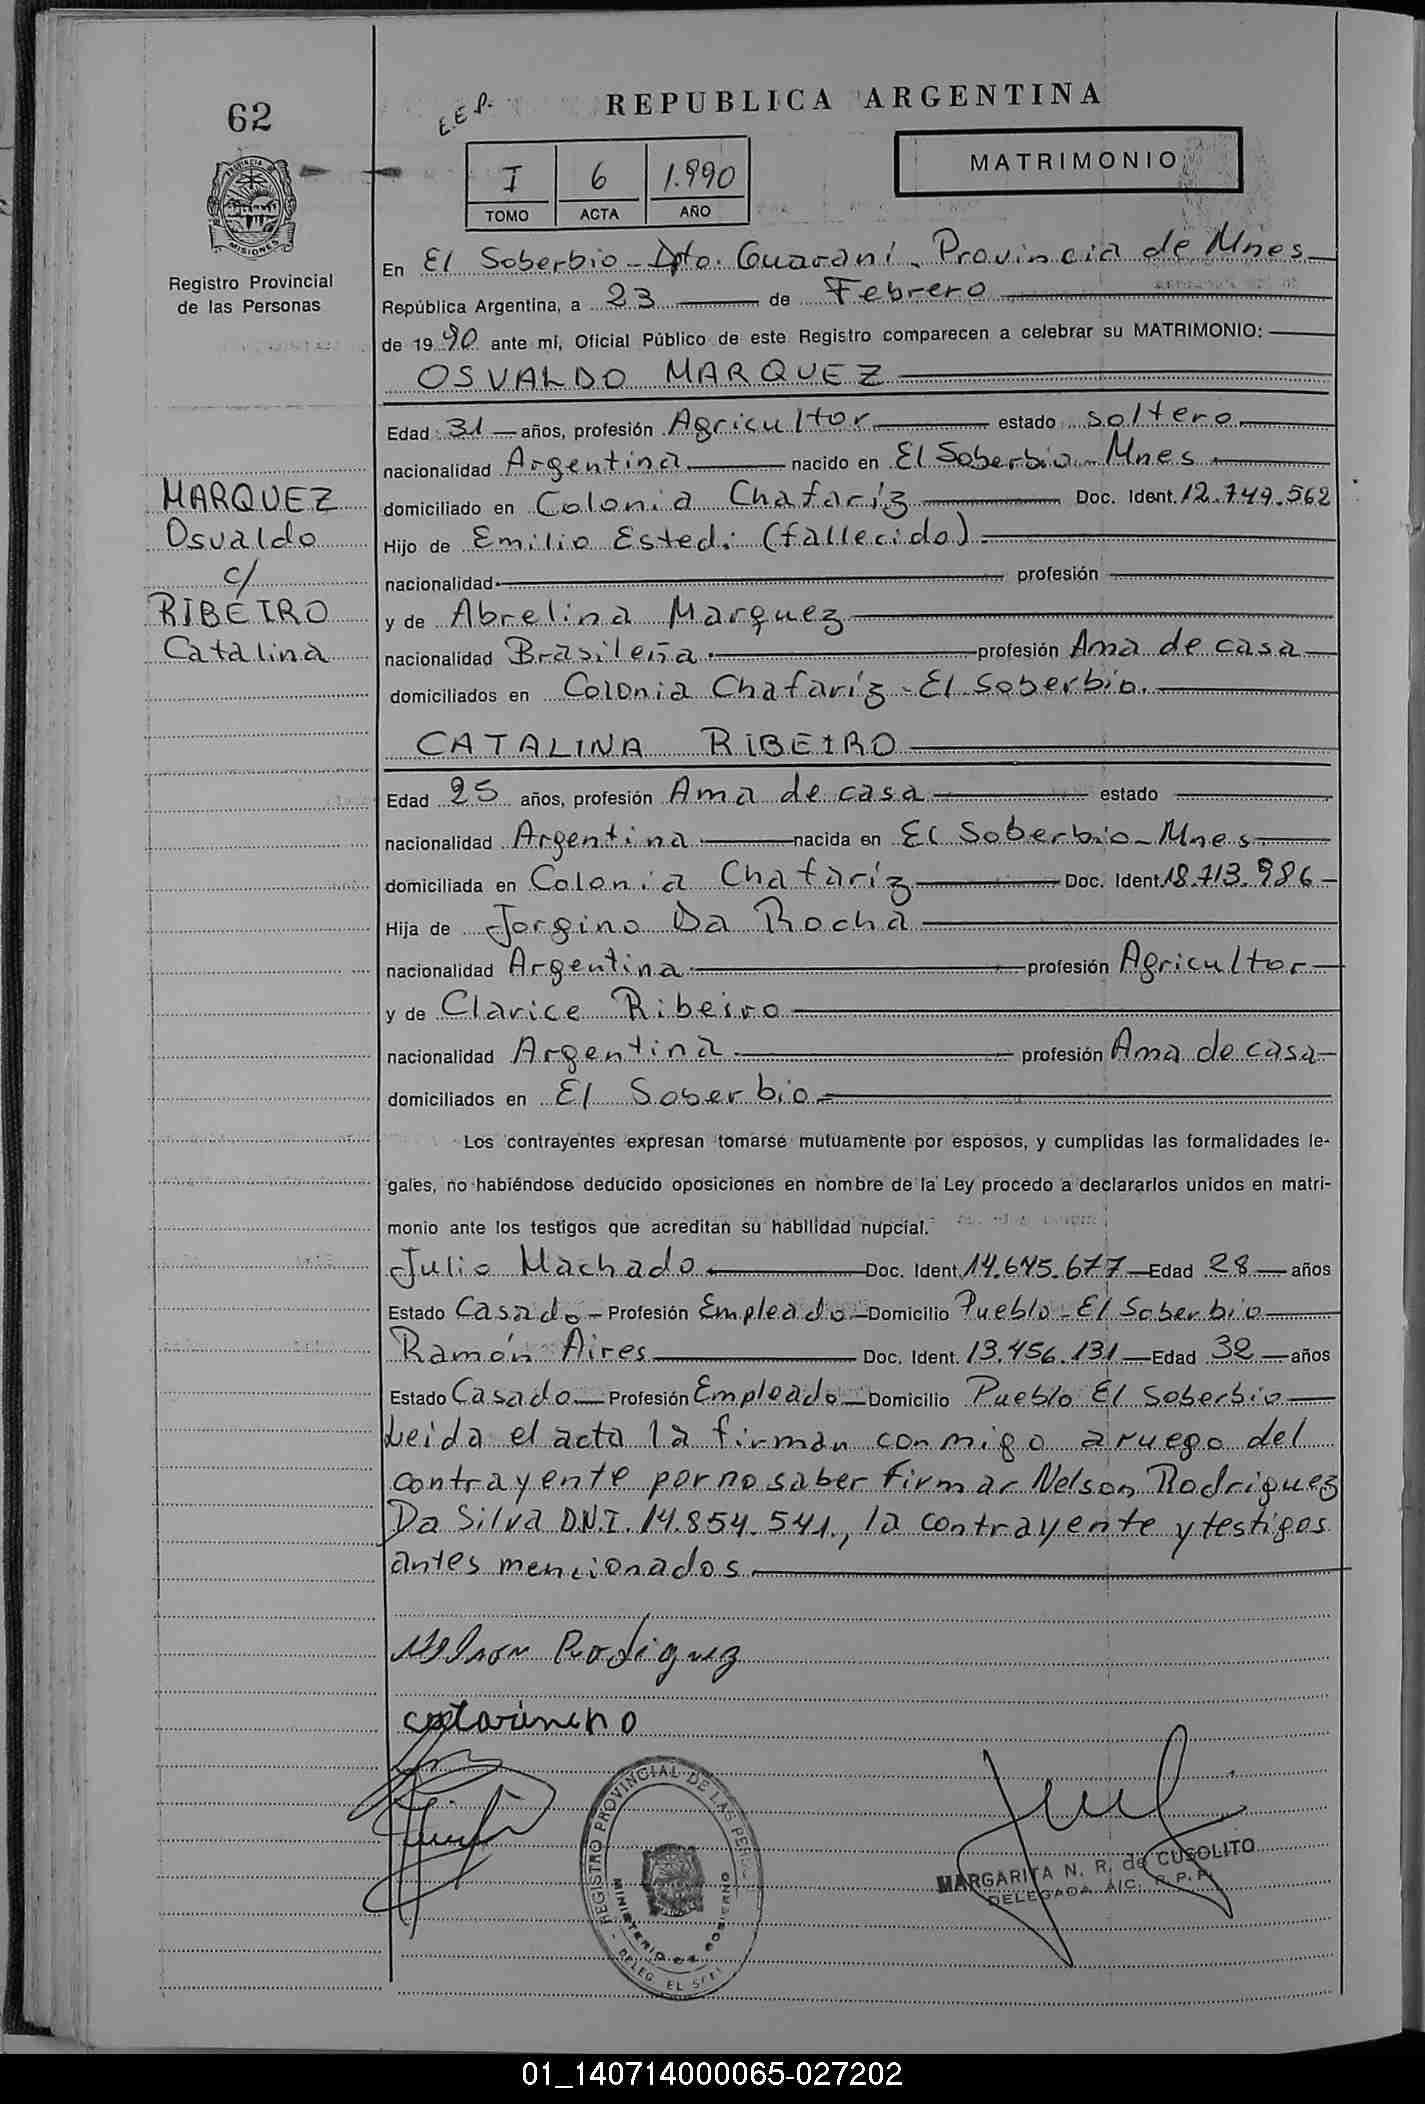 62
E.E.P.
REPUBLICA ARGENTINA
MATRIMONIO
I 6 1.990
TOMO ACTA AÑO
PROVINCIA DE
MISIONES
Registro Provincial
de las Personas
En El Soberbio - Dto. Guaraní. Provincia de Mnes
República Argentina, a 23 de Febrero
de 1990 ante mí, Oficial Público de este Registro comparecen a celebrar su MATRIMONIO:
OSVALDO MARQUEZ
Edad 31 años, profesión Agricultor estado soltero
nacionalidad Argentina nacido en El Soberbio - Mnes.
domiciliado en Colonia Chafaríz Doc. Ident. 12.749.562
Hijo de Emilio Estedi (fallecido).
nacionalidad profesión
y de Abrelina Marquez
nacionalidad Brasileña. profesión Ama de casa
domiciliados en Colonia Chafaríz - El Soberbio.
MARQUEZ
Osvaldo
c/
RIBEIRO
Catalina
CATALINA RIBEIRO
Edad 25 años, profesión Ama de casa estado
nacionalidad Argentina nacida en El Soberbio - Mnes.
domiciliada en Colonia Chafaríz Doc. Ident. 18.713.986
Hija de Jorgino Da Rocha
nacionalidad Argentina profesión Agricultor
y de Clarice Ribeiro
nacionalidad Argentina. profesión Ama de casa
domiciliados en El Soberbio
Los contrayentes expresan tomarse mutuamente por esposos, y cumplidas las formalidades le-
gales, no habiéndose deducido oposiciones en nombre de la Ley procedo a declararlos unidos en matri-
monio ante los testigos que acreditan su habilidad nupcial.
Julio Machado Doc. Ident. 14.645.677 Edad 28 años
Estado Casado - Profesión Empleado Domicilio Pueblo - El Soberbio
Ramón Aires Doc. Ident. 13.456.131 Edad 32 años
Estado Casado Profesión Empleado Domicilio Pueblo El Soberbio
Leida el acta la firman conmigo a ruego del
contrayente por no saber firmar Nelson Rodriguez
Da Silva D.N.I. 14.854.541., la contrayente y testigos
antes mencionados
Nelson Rodriguez
REGISTRO PROVINCIAL DE LAS PERS.
MINISTERIO DE GOBIERNO
DELEG. EL
MARGARITA N. R. de CUSOLITO
DELEGADA A/C. R.P.P.
01_140714000065-027202